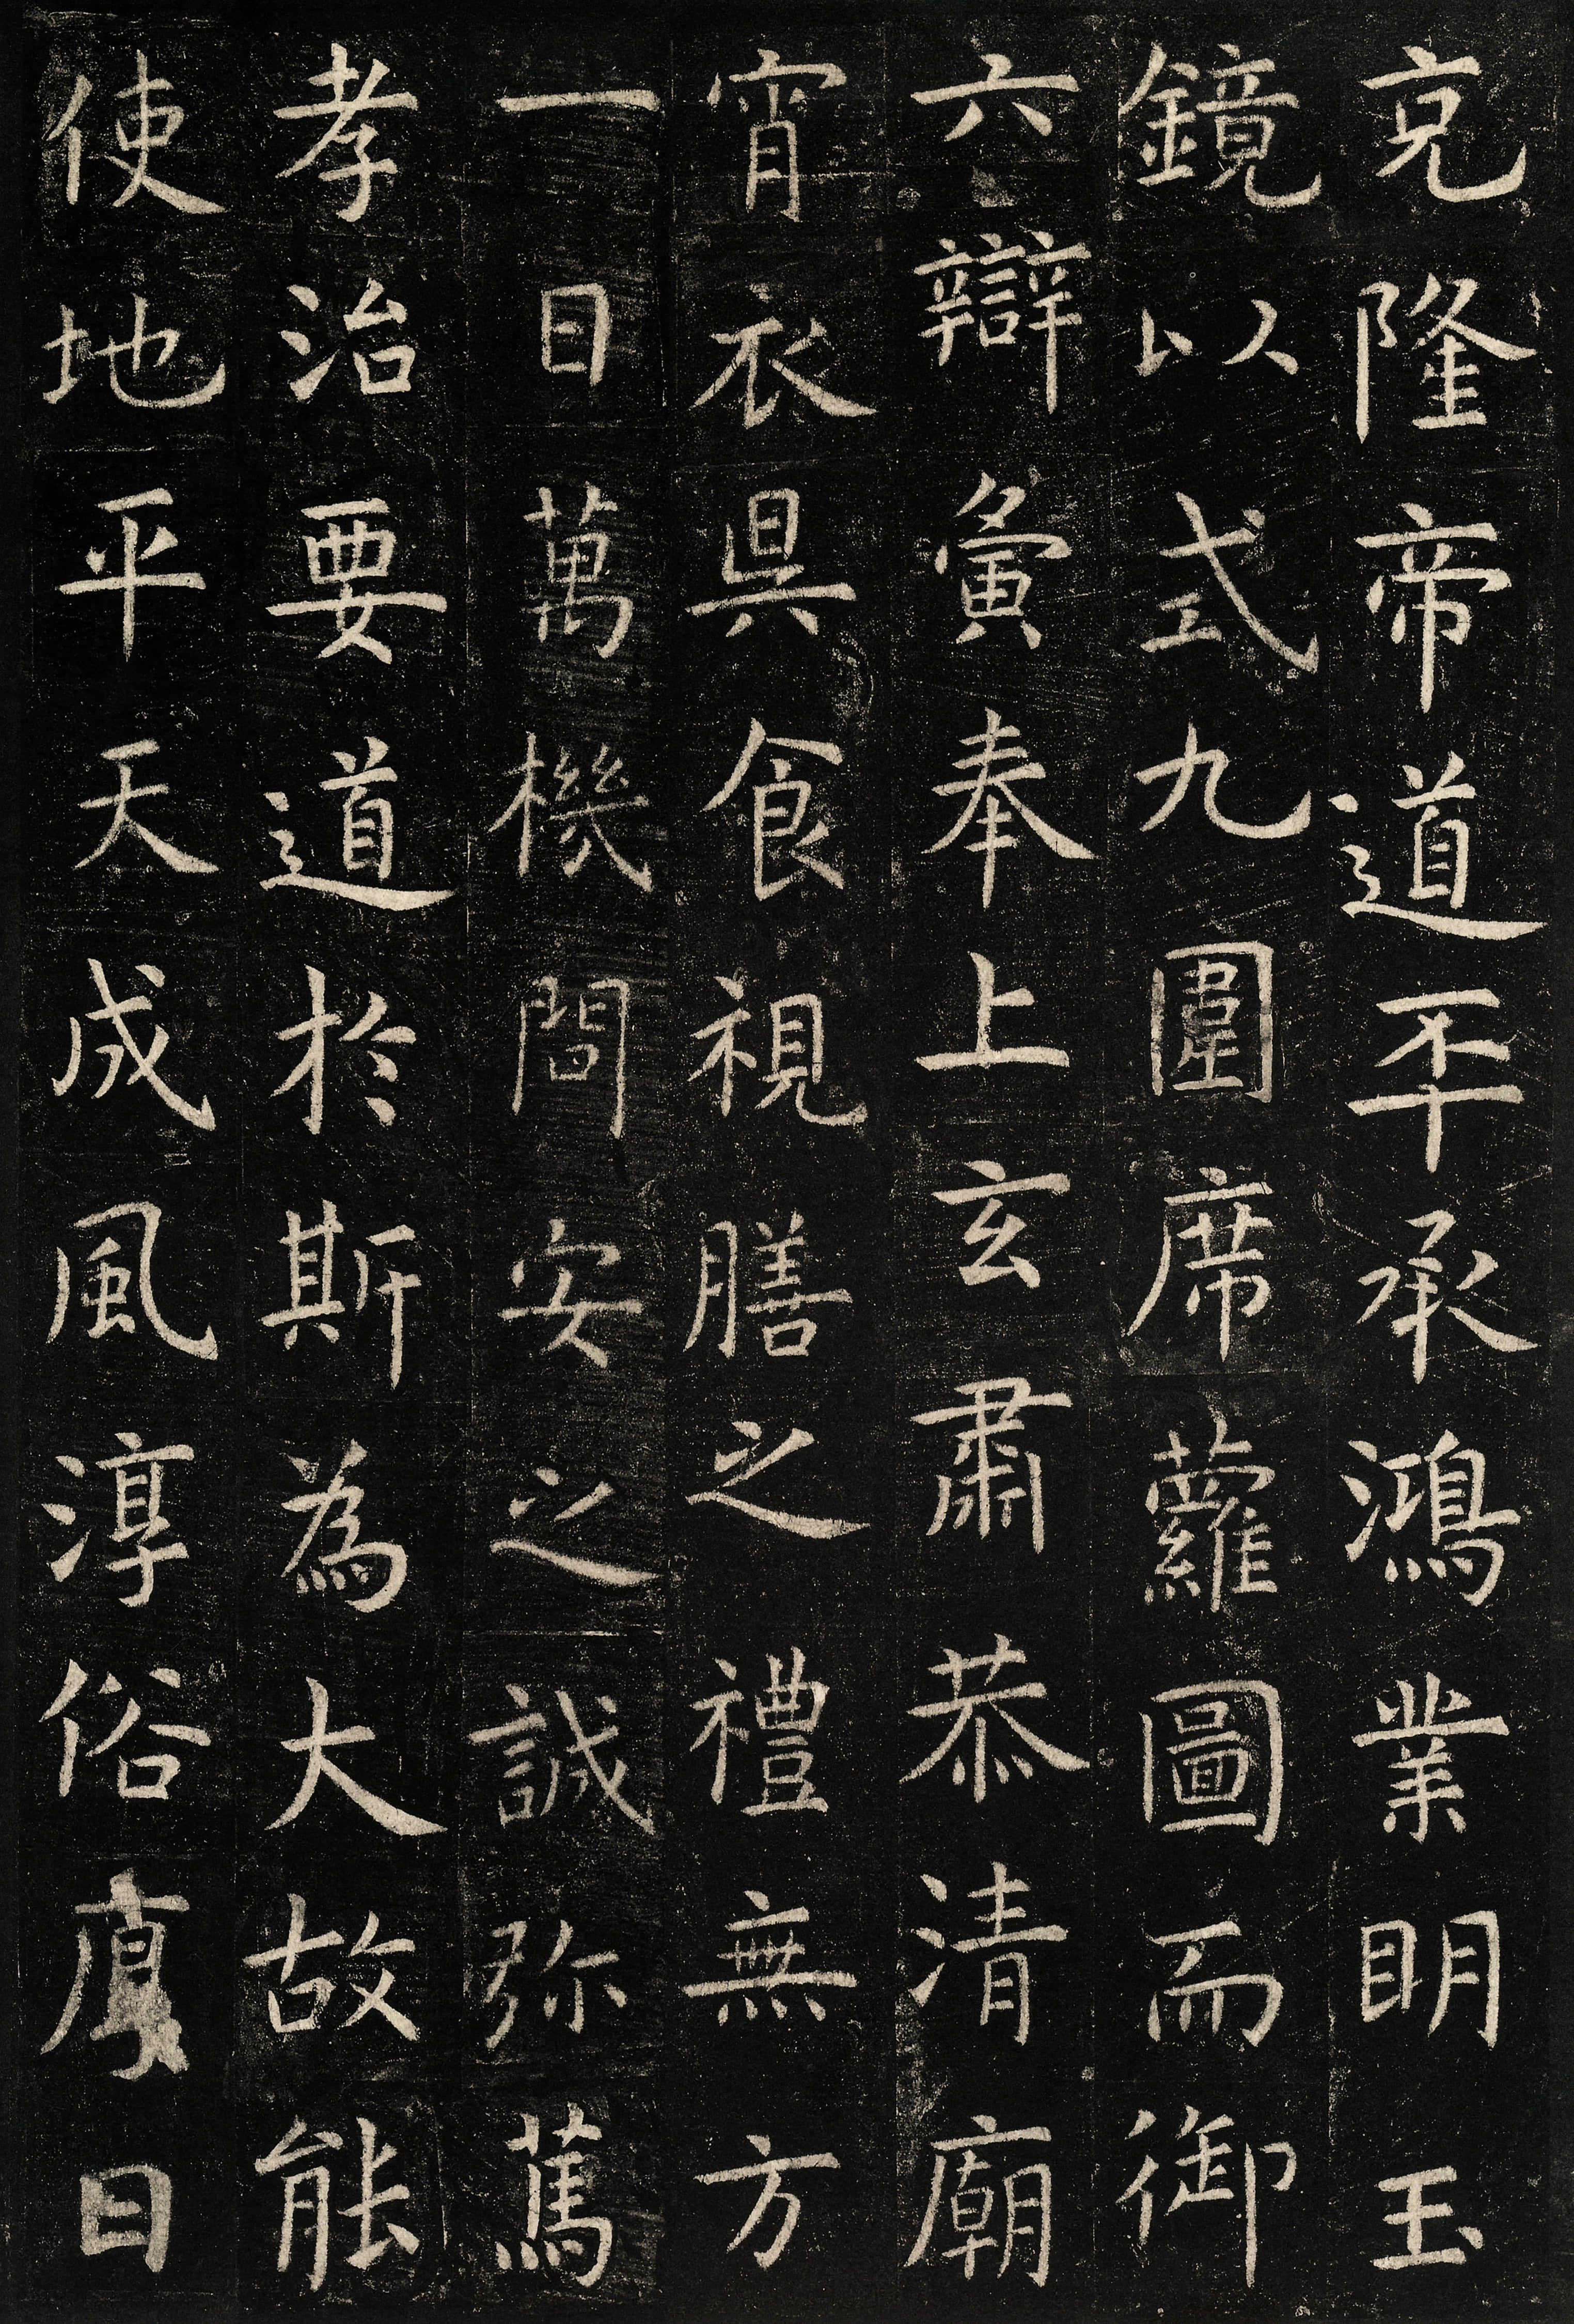 克隆帝道丕承鴻業明玉
鏡以式九圍席蘿圖而御
六辯夤奉上玄肅恭清廟
宵衣昃食視膳之禮無方
一日萬機問安之誠弥篤
孝治要道於斯為大故能
使地平天成風淳俗厚日